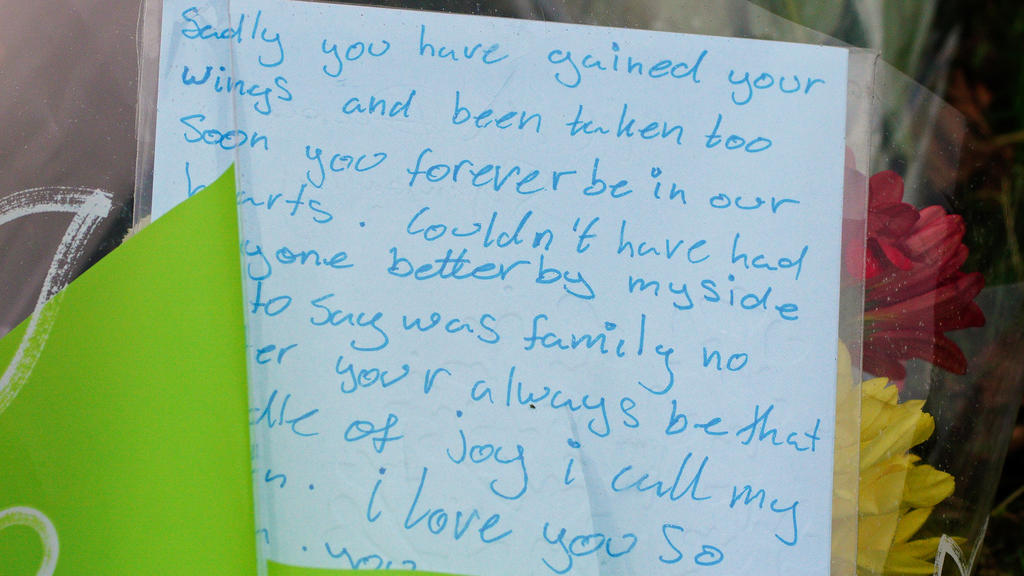 Sadly you have gained your
wings and been taken too
Soon you forever be in our
hearts. Couldn't have had
yone better by my side
to say was family no
er your always be that
dle of joy i call my
n. i love you so
you